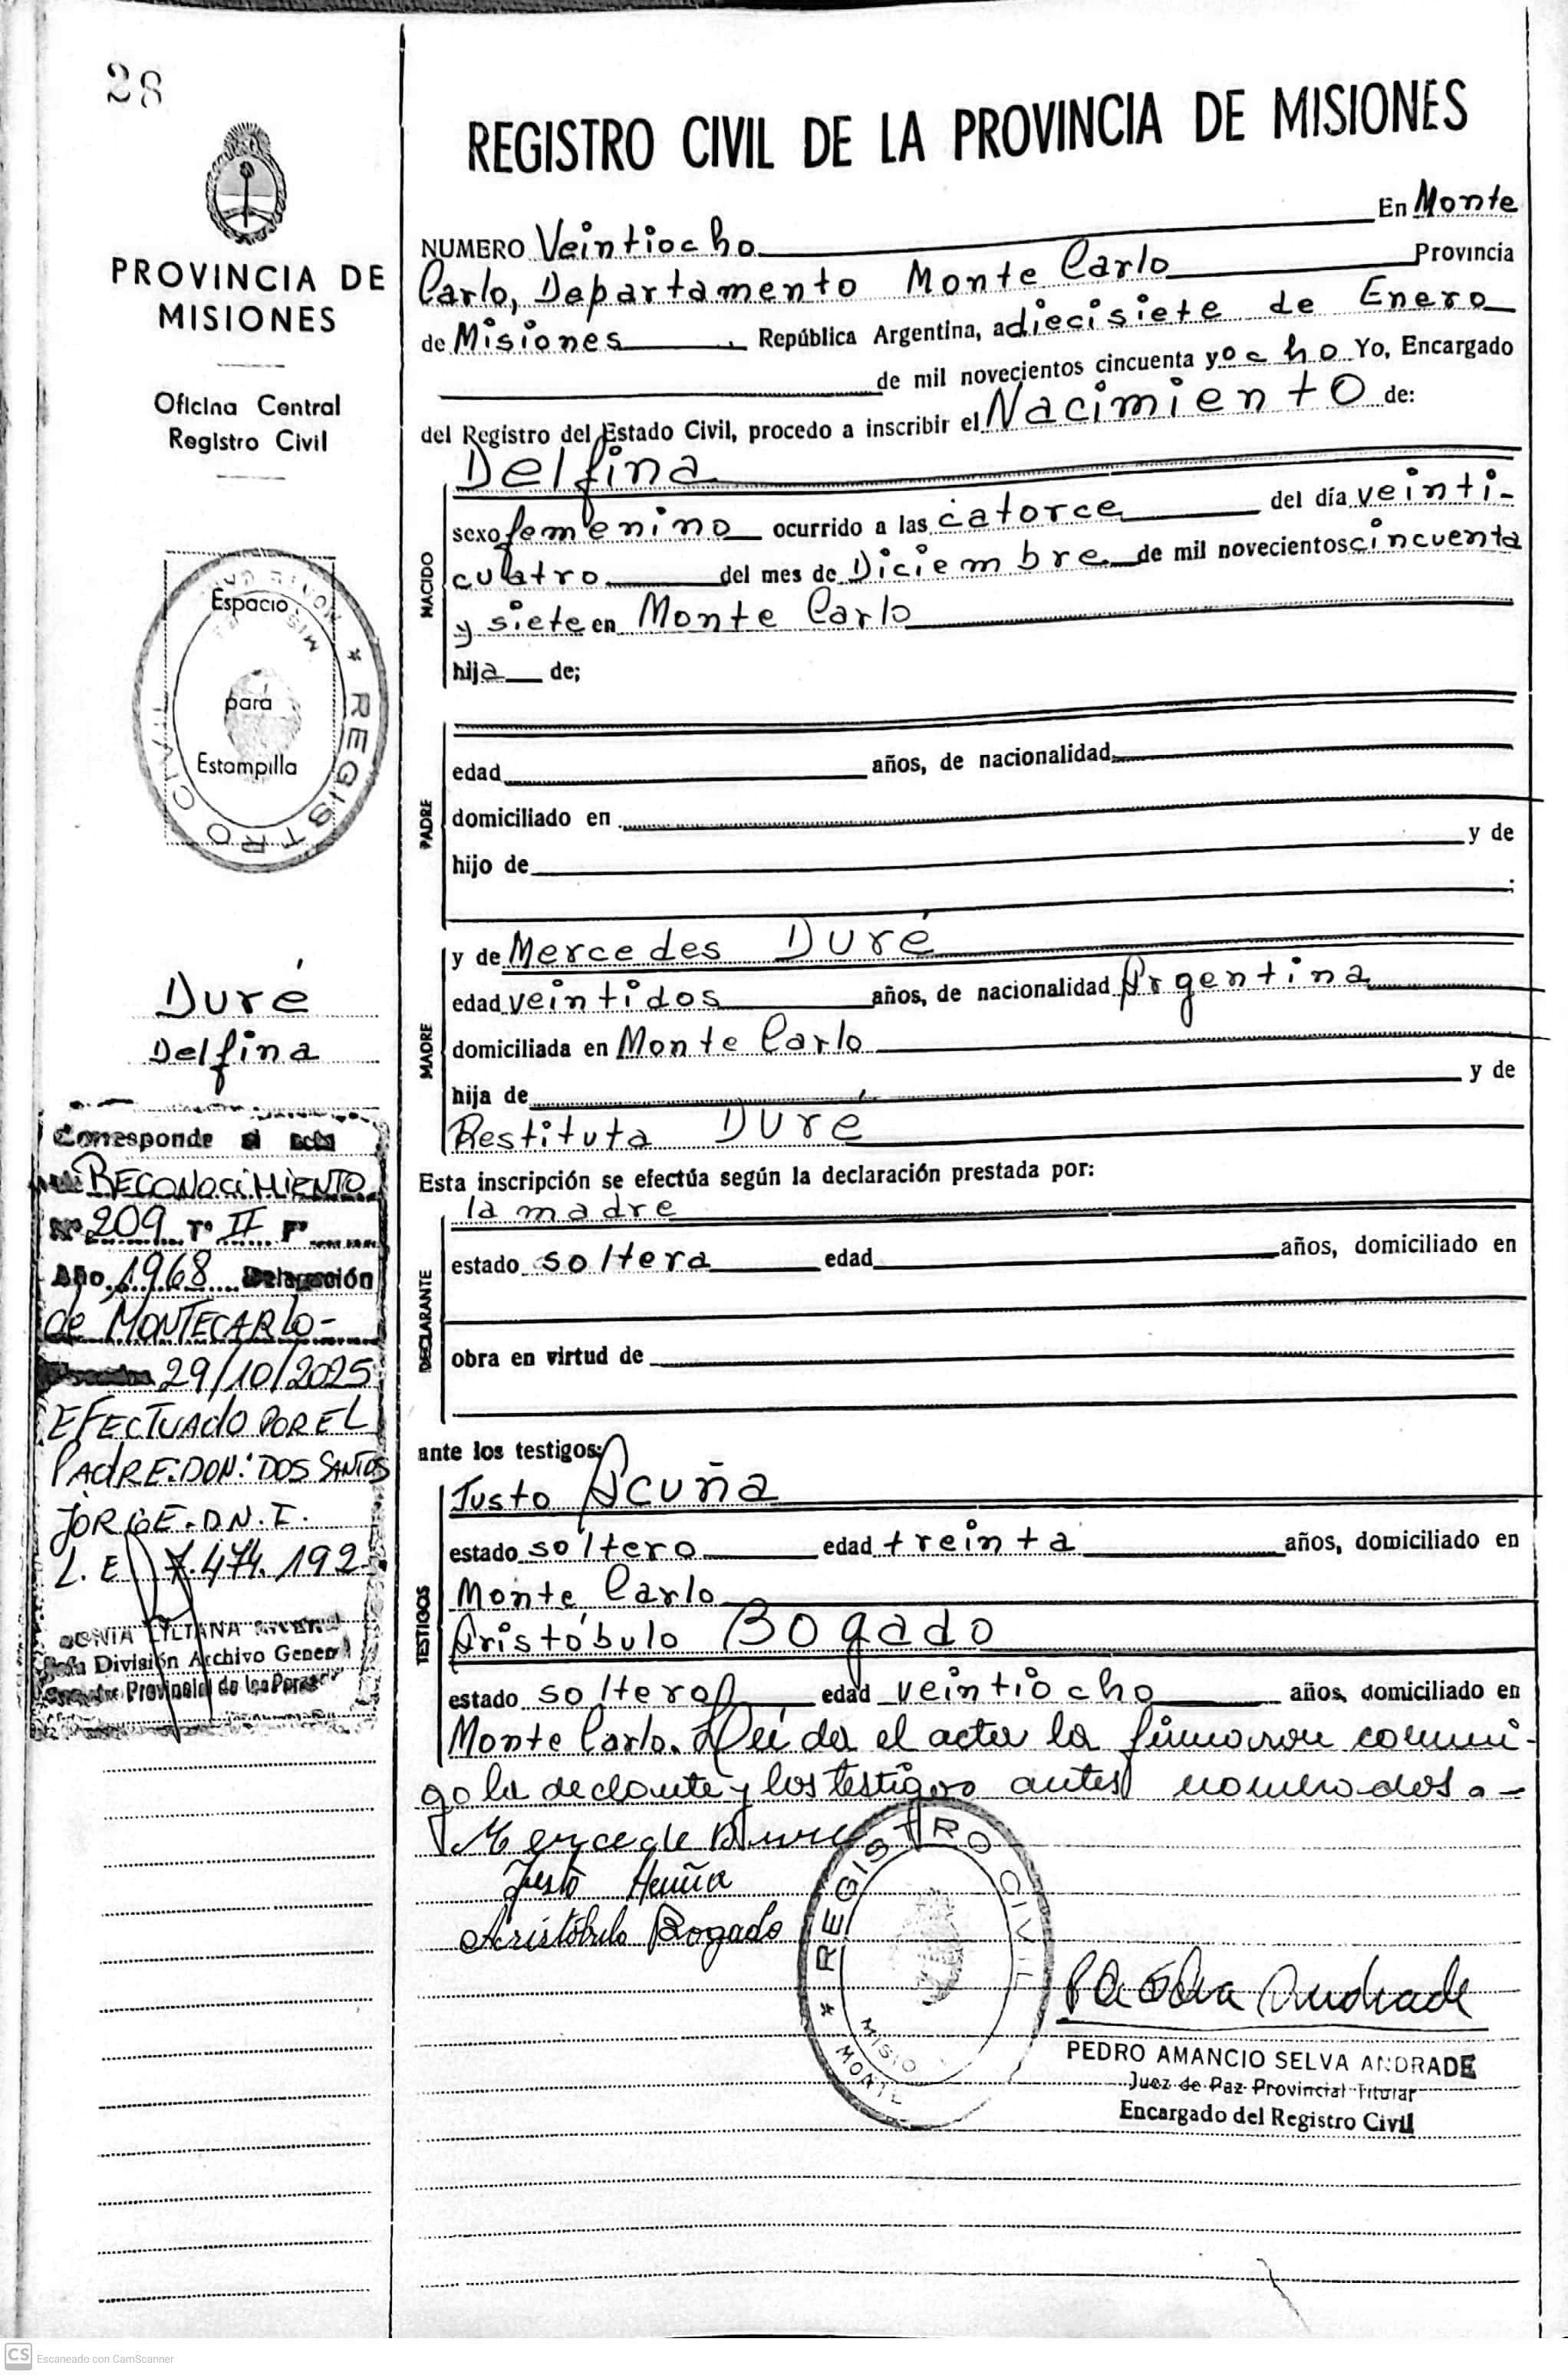 28
PROVINCIA DE
MISIONES
Oficina Central
Registro Civil
Espacio
para
Estampilla
REGISTRO CIVIL
Duré
Delfina
Corresponde al acta
RECONOCIMIENTO
Nº 209 Tº II Fº
Año 1968 Delegación
de MONTECARLO-
29/10/2025
EFECTUADO POR EL
PADRE: DON: DOS SANTOS
JORGE. D.N.I.
L.E 7.474.192
SONIA LILIANA
División Archivo General
Provincial de las Personas
REGISTRO CIVIL DE LA PROVINCIA DE MISIONES
NUMERO Veintiocho En Monte
Carlo, Departamento Monte Carlo Provincia
de Misiones. República Argentina, a diecisiete de Enero
de mil novecientos cincuenta y ocho Yo, Encargado
del Registro del Estado Civil, procedo a inscribir el Nacimiento de:
NACIDO
Delfina
sexo femenino ocurrido a las catorce del día veinti-
cuatro del mes de Diciembre de mil novecientos cincuenta
y siete en Monte Carlo
hija de;
PADRE
edad años, de nacionalidad
domiciliado en
hijo de y de
;
MADRE
y de Mercedes Duré
edad veintidos años, de nacionalidad Argentina
domiciliada en Monte Carlo
hija de y de
Restituta Duré
Esta inscripción se efectúa según la declaración prestada por:
DECLARANTE
la madre
estado soltera edad años, domiciliado en
obra en virtud de
ante los testigos:
TESTIGOS
Justo Acuña
estado soltero edad treinta años, domiciliado en
Monte Carlo
Aristóbulo Bogado
estado soltero edad veintiocho años, domiciliado en
Monte Carlo. Leída el acta la firmaron conmi-
go la declante y los testigos antes nombrados.-
Mercede Dure
Justo Acuña
Aristóbulo Bogado
REGISTRO CIVIL
MISIO
MONTE
PA Selva Andrade
PEDRO AMANCIO SELVA ANDRADE
Juez de Paz Provincial Titular
Encargado del Registro Civil
CS Escaneado con CamScanner